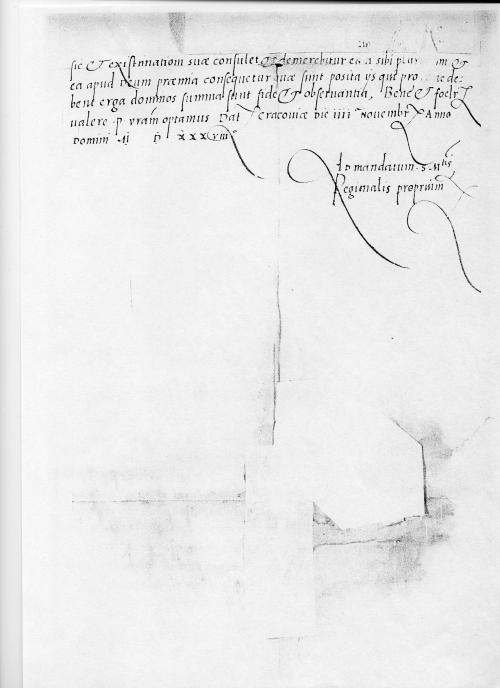 sic & existimationi suæ consulet & demerebitur ea sibi
ea apud Deum præmia consequetur quæ sunt posita ijs qui de-
bent erga dominos summa sunt fide & observantia, Bene & foelr
valere p vram optamus Dat Cracoviæ Die iiii Novembr Anno
Domini M D xxxviii
Ad mandatum S Mtis
Reginalis proprium